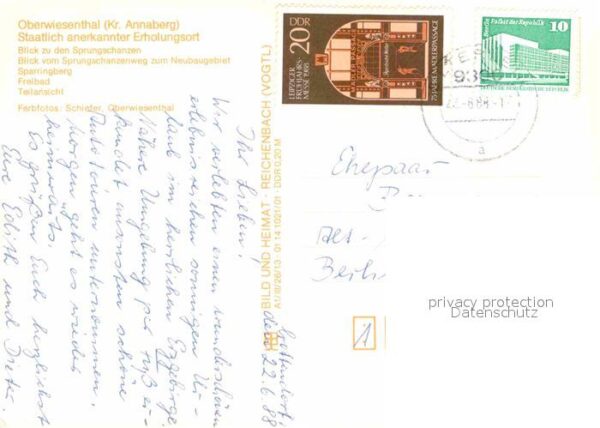 Oberwiesenthal (Kr. Annaberg)
Staatlich anerkannter Erholungsort
Blick zu den Sprungschanzen
Blick vom Sprungschanzenweg zum Neubaugebiet
Sparringberg
Freibad
Teilansicht
Farbfotos: Schiefer, Oberwiesenthal
BILD UND HEIMAT · REICHENBACH (VOGTL)
A1/III/26/13 01 14 1921/01 DDR 0,20 M
DDR
20
LEIPZIGER
FRÜHJAHRS-
MESSE 1988
75 JAHRE MÄDLERPASSAGE
Berlin, Palast der Republik
10
DEUTSCHE DEMOKRATISCHE REPUBLIK
22.-6.88-1
a
den 22.6.88
Ihr Lieben!
Wir verlebten einen wunderschönen
erlebnisreichen sonnigen Ur-
laub im herrlichen Erzgebirge.
Nähere Umgebung per Fuß er-
kundet ansonsten schöne
Autotouren unternommen.
Morgen geht es wieder
heimwärts.
Es grüßen Euch herzlichst
Eure Edith und Dieter.
Ehepaar
Berlin
1
privacy protection
Datenschutz